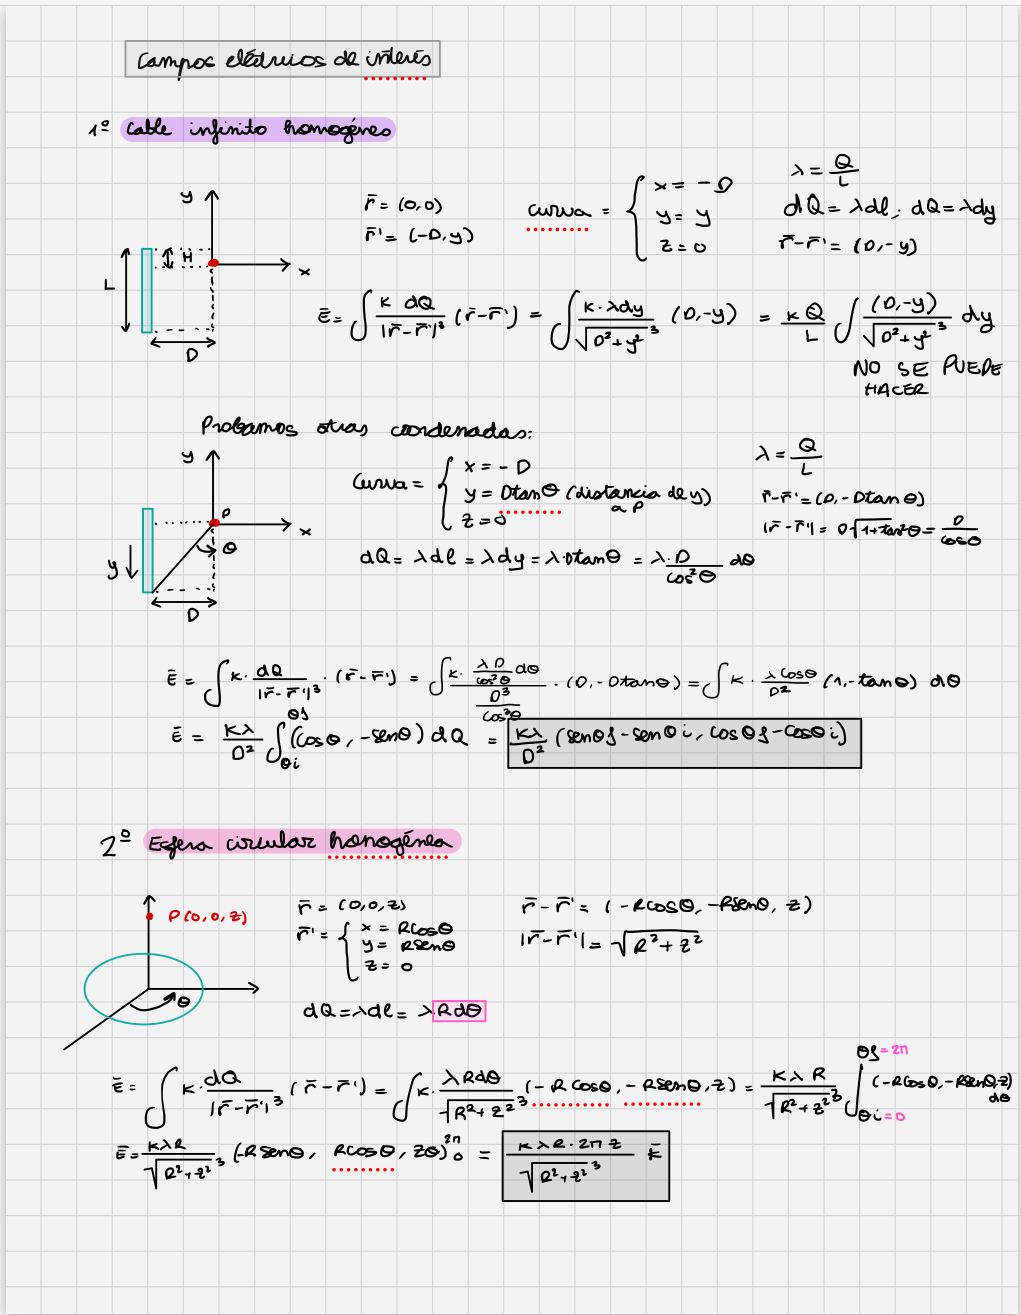 Campos eléctricos de interés
1º Cable infinito homogéneo
y
H
L
x
D
r̄ = (0,0)
r̄' = (-D, y)
curva = { x = -D
y = y
z = 0
λ = Q/L
dQ = λdl; dQ = λdy
r̄-r̄' = (D,-y)
Ē = ∫ K dQ / |r̄-r̄'|³ (r̄-r̄') = ∫ K·λdy / √(D²+y²)³ (D,-y) = KQ/L ∫ (D,-y) / √(D²+y²)³ dy
NO SE PUEDE
HACER
Probamos otras coordenadas:
y
P
x
θ
y
D
Curva = { x = -D
y = Dtanθ (distancia de y)
a P
z = 0
λ = Q/L
r̄-r̄' = (D,-Dtanθ)
|r̄-r̄'| = D√(1+tan²θ) = D/cosθ
dQ = λdl = λdy = λ·Dtanθ = λ·D/cos²θ dθ
Ē = ∫ K· dQ / |r̄-r̄'|³ · (r̄-r̄') = ∫ K· (λD/cos²θ dθ) / (D³/cos³θ) · (D,-Dtanθ) = ∫ K · λcosθ/D² (1,-tanθ) dθ
Ē = Kλ/D² ∫θi^θf (cosθ, -senθ) dQ = Kλ/D² (senθf-senθi, cosθf-cosθi)
2º Esfera circular homogénea
P(0,0,z)
θ
r̄ = (0,0,z)
r̄' = { x = Rcosθ
y = Rsenθ
z = 0
r̄-r̄' = (-Rcosθ,-Rsenθ, z)
|r̄-r̄'| = √(R²+z²)
dQ = λdl = λRdθ
Ē = ∫ K· dQ / |r̄-r̄'|³ (r̄-r̄') = ∫ K· λRdθ / √(R²+z²)³ (-Rcosθ,-Rsenθ,z) = KλR / √(R²+z²)³ ∫θi=0^θf=2π (-Rcosθ,-Rsenθ,z) dθ
Ē = KλR / √(R²+z²)³ (-Rsenθ, Rcosθ, zθ)₀^2π = KλR·2πz / √(R²+z²)³ k̄